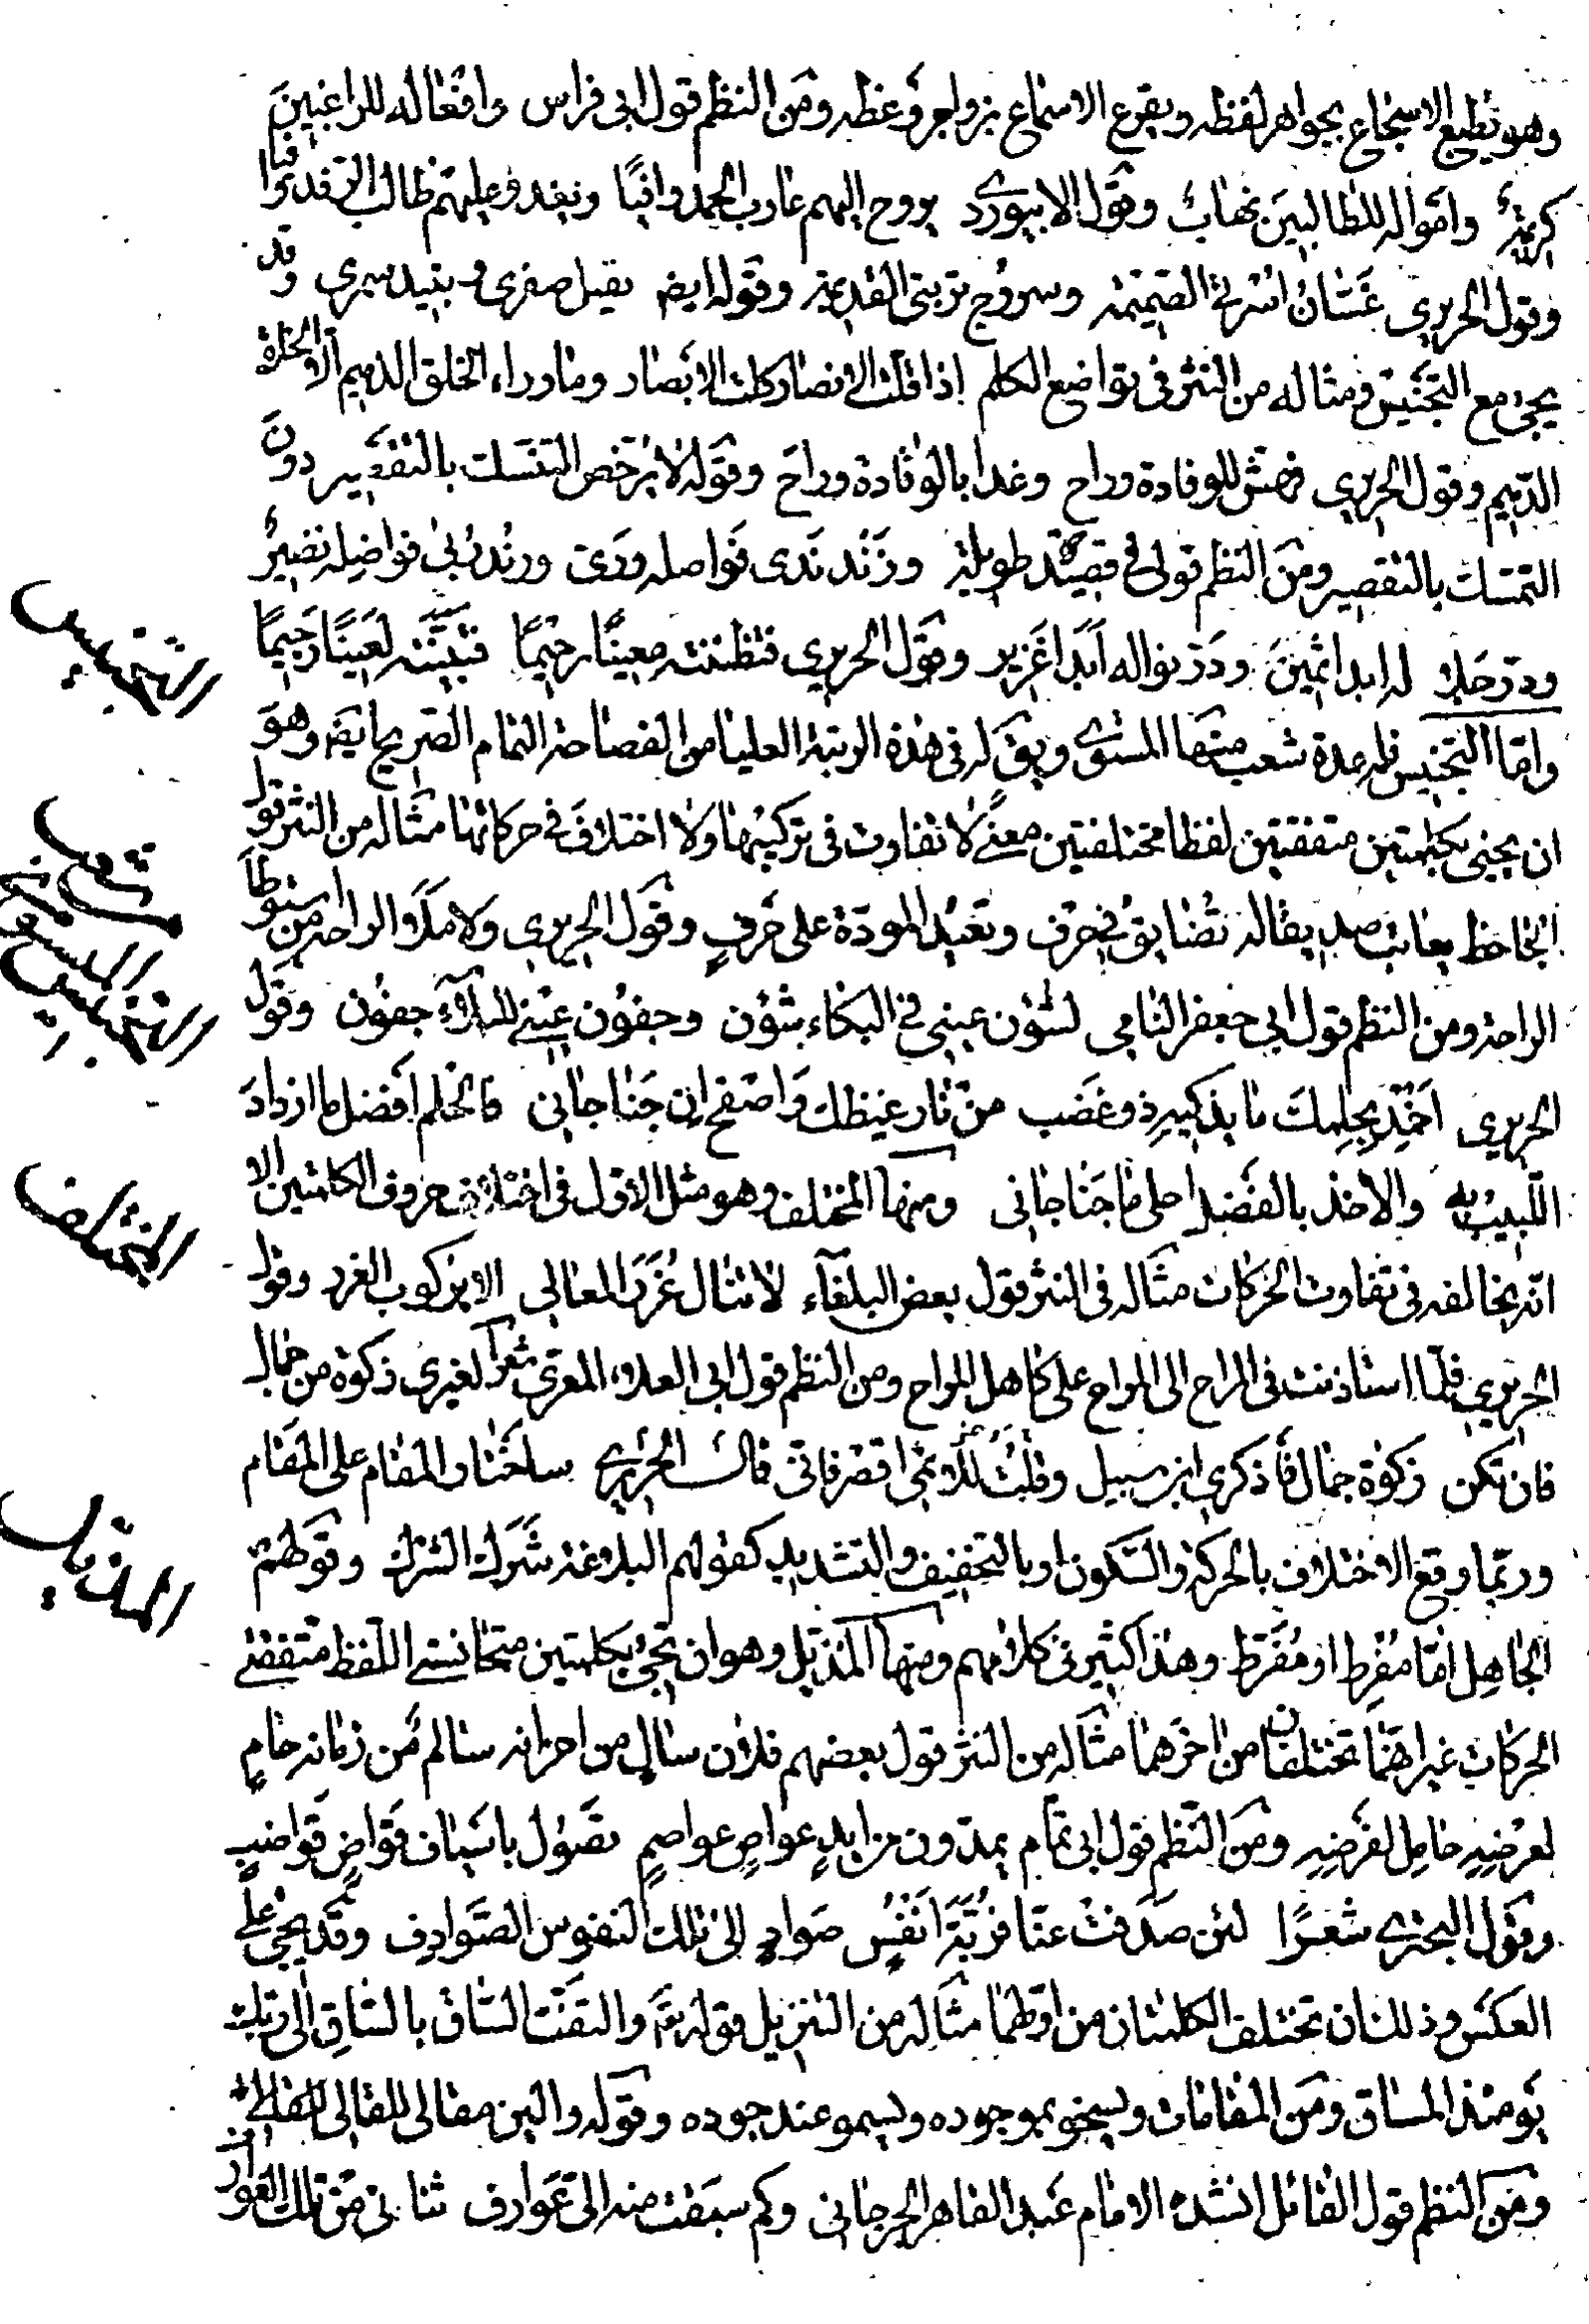 وهو يطبع الاسجاع بجواهر لفظه ويقرع الاسماع بزواجر وعظه ومن النظم قول ابى فراس وافعاله للراغبين
كريمة واموالہ للطالبين نهاب وقول الابيوردى يروح اليهم عازب الحمد وافيًا ويغدو عليهم طالب الرفد عافيا
وقول الحريرى غسّان اسرتى الصميمة وسروج تربتى القديمة وقوله ايضا يقبل صفرى بنيه سمرى وقد
يجئ مع التجنيس ومثاله من النثر فى تواضيع الكلم اذا قلت الانصار كلت الابصار وما وراء الخلق الدميم الا الخلق
الذميم وقول الحريرى فهش للوفادة وراح وغدا بالوفادة وراح وقوله لا برخص التنسك بالتقصير دون
التمسك بالتقصير ومن النظم قولى فى قصيدة طويلة وزند ندى فواضله ورى ورند ربى فواضله نضير
ودر جلاله ابدا ثمين ودر نواله ابدا غزير وقول الحريرى فظننته معينًا رحيمًا فتبينته لعينًا رجيمًا
وامّا التجنيس فله عدة شعب منها المستوفى ويقع له فى هذه الرتبة العليا من الفصاحة التمام الصريح ايضا وهو
ان يجئ بكلمتين متفقتين لفظا مختلفتين معنى لا تفاوت فى تركيبها ولا اختلاف فى حركاتها مثاله من النثر قول
الجاحظ يعاتب صديقاله تضايق فى حرف وتعبد المودة على حرفٍ وقول الحريرى ولا ملأ الراحة من استوطأ
الراحة ومن النظم قول ابى جعفر النامى لشؤن عينى فى البكاء شؤن وجفون عينى للبلاء جفون وقول
الحريرى اخمد بحلمك ما يذكيه ذو غضب من نار غيظك واصفح ان جنا جانى فالحلم افضل ما ازداد
اللبيب به والاخذ بالفضل احلى ما جنا جانى ومنها المختلف وهو مثل الاول فى اختلاف حروف الكلمتين الا
انه يخالفه فى تفاوت الحركات مثاله فى النثر قول بعض البلغاء لا تنال غرر المعالى الا بركوب الغرر وقول
الحريرى فلما استاذنت فى المراح الى المراح على كاهل المراح ومن النظم قول ابى العلاء المعرى شعرا لغيرى زكوة من جمال
فان تكن زكوة جمال فاذكرى ابن سبيل وقلت للائمى اقصر فانى قال الحريرى ساختار المقام على المقام
وربما وقع الاختلاف بالحركة والسكون او بالتخفيف والتشديد كقولهم البدعة شرك الشرك وقولهم
الجاهل امّا مفرط او مفرّط وهذا كثير فى كلامهم ومنها المذيل وهو ان يجئ بكلمتين متجانستى اللفظ متفقتى
الحركات غير انهما تختلفان من اخرهما مثاله من النثر قول بعضهم فلان سالٍ من احزانه سالم من زمانه حامٍ
لعرضه حامل لفرضه ومن النظم قول ابى تمام يمدون من ايدٍ عواصٍ عواصمٍ تصول باسياف قواضٍ قواضبٍ
وقول البحترى شعرًا لئن صدفت عنا فربّة انفس صوادٍ الى تلك النفوس الصوادف وقد يجئ على
العكس وذلك ان تختلف الكلمتان من اولهما مثاله من التنزيل قوله تع والتفت الساق بالساق الى ربك
يومئذ المساق ومن المقامات ويسخو بموجوده ويسمو عند جوده وقوله والين مقالى للقالى
ومن النظم قول القائل انشده الامام عبد القاهر الجرجانى وكم سبقت منه الىّ عوارف ثنائى من تلك العوارف
التجنيس
المستوفى
التجنيس
المختلف
المذيل